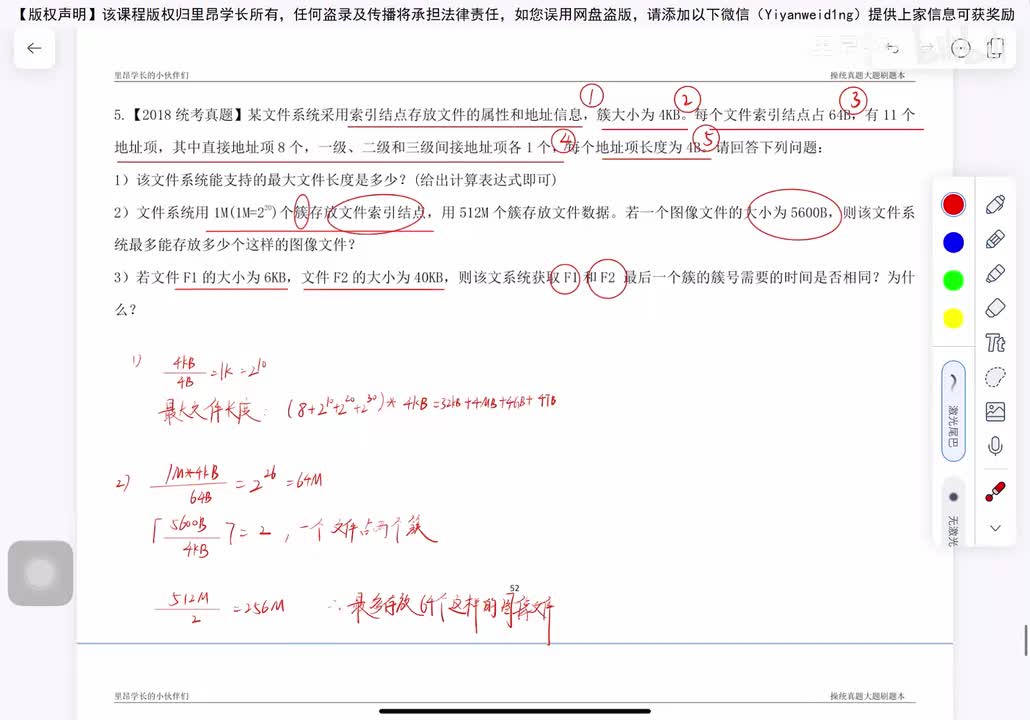 【版权声明】该课程版权归里昂学长所有，任何盗录及传播将承担法律责任，如您误用网盘盗版，请添加以下微信（Yiyanweid1ng）提供上家信息可获奖励
里昂学长的小伙伴们 操统真题大题刷题本
① ② ③
5.【2018 统考真题】某文件系统采用索引结点存放文件的属性和地址信息，簇大小为 4KB。每个文件索引结点占 64B，有 11 个
④ ⑤
地址项，其中直接地址项 8 个，一级、二级和三级间接地址项各 1 个，每个地址项长度为 4B。请回答下列问题：
1）该文件系统能支持的最大文件长度是多少？(给出计算表达式即可)
2）文件系统用 1M(1M=2²⁰)个簇存放文件索引结点，用 512M 个簇存放文件数据。若一个图像文件的大小为 5600B，则该文件系
统最多能存放多少个这样的图像文件？
3）若文件 F1 的大小为 6KB，文件 F2 的大小为 40KB，则该文系统获取 F1 和 F2 最后一个簇的簇号需要的时间是否相同？为什
么？
1) 4KB/4B =1K =2¹⁰
最大文件长度： (8+2¹⁰+2²⁰+2³⁰)* 4KB =32KB+4MB+4GB+4TB
2) 1M*4KB/64B = 2²⁶ =64M
⌈5600B/4KB⌉= 2 ，一个文件占两个簇
52
512M/2 =256M ∴最多存放 64个这样的图像文件
里昂学长的小伙伴们 操统真题大题刷题本
Tt
激光尾巴
无激光